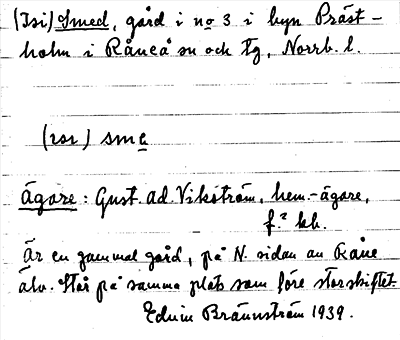 (Isi) Smed, gård i no 3 i byn Präst-
holm i Råneå sn och tg, Norrb. l.
sme
ägare: Gust. Ad. Vikström, hem.-ägare,
f.
Är en gammal gård, på N. sidan av Råne
älv. Står på samma plats som före storskiftet.
Edvin Brännström 1939.